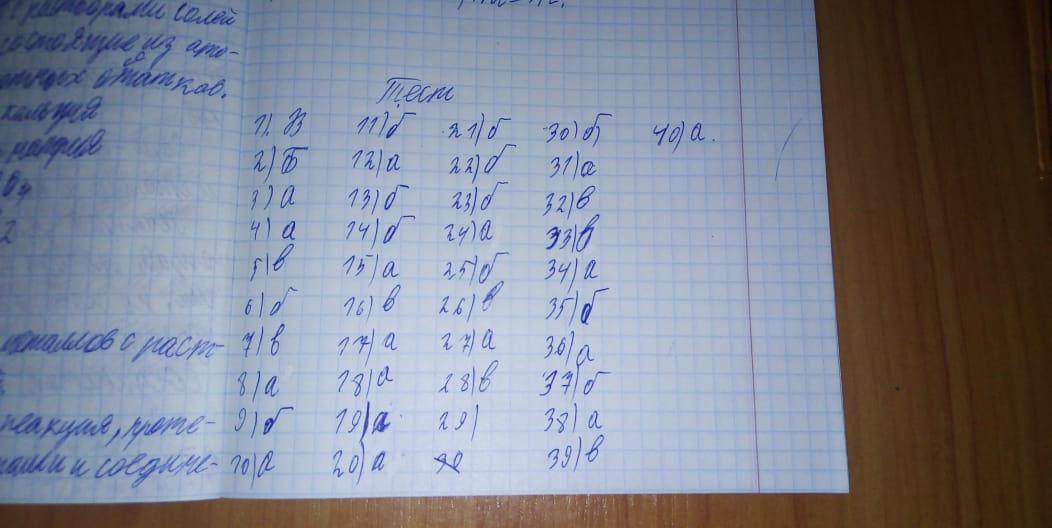 с растворами солей
состоящие из ато-
остатков.
кальция
натрия
2
металлов с раст-
реакция, проте-
и соедине-
Тест
1) В 11) б 21) б 30) б) 40) а.
2) Б 12) а 22) б 31) а
3) а 13) б 23) б 32) в
4) а 14) б 24) а 33) в
5) в 15) а 25) б 34) а
6) б 16) в 26) в 35) б
7) в 17) а 27) а 36) а
8) а 18) а 28) в 37) б
9) б 19) а 29) 38) а
10) а 20) а 39) в